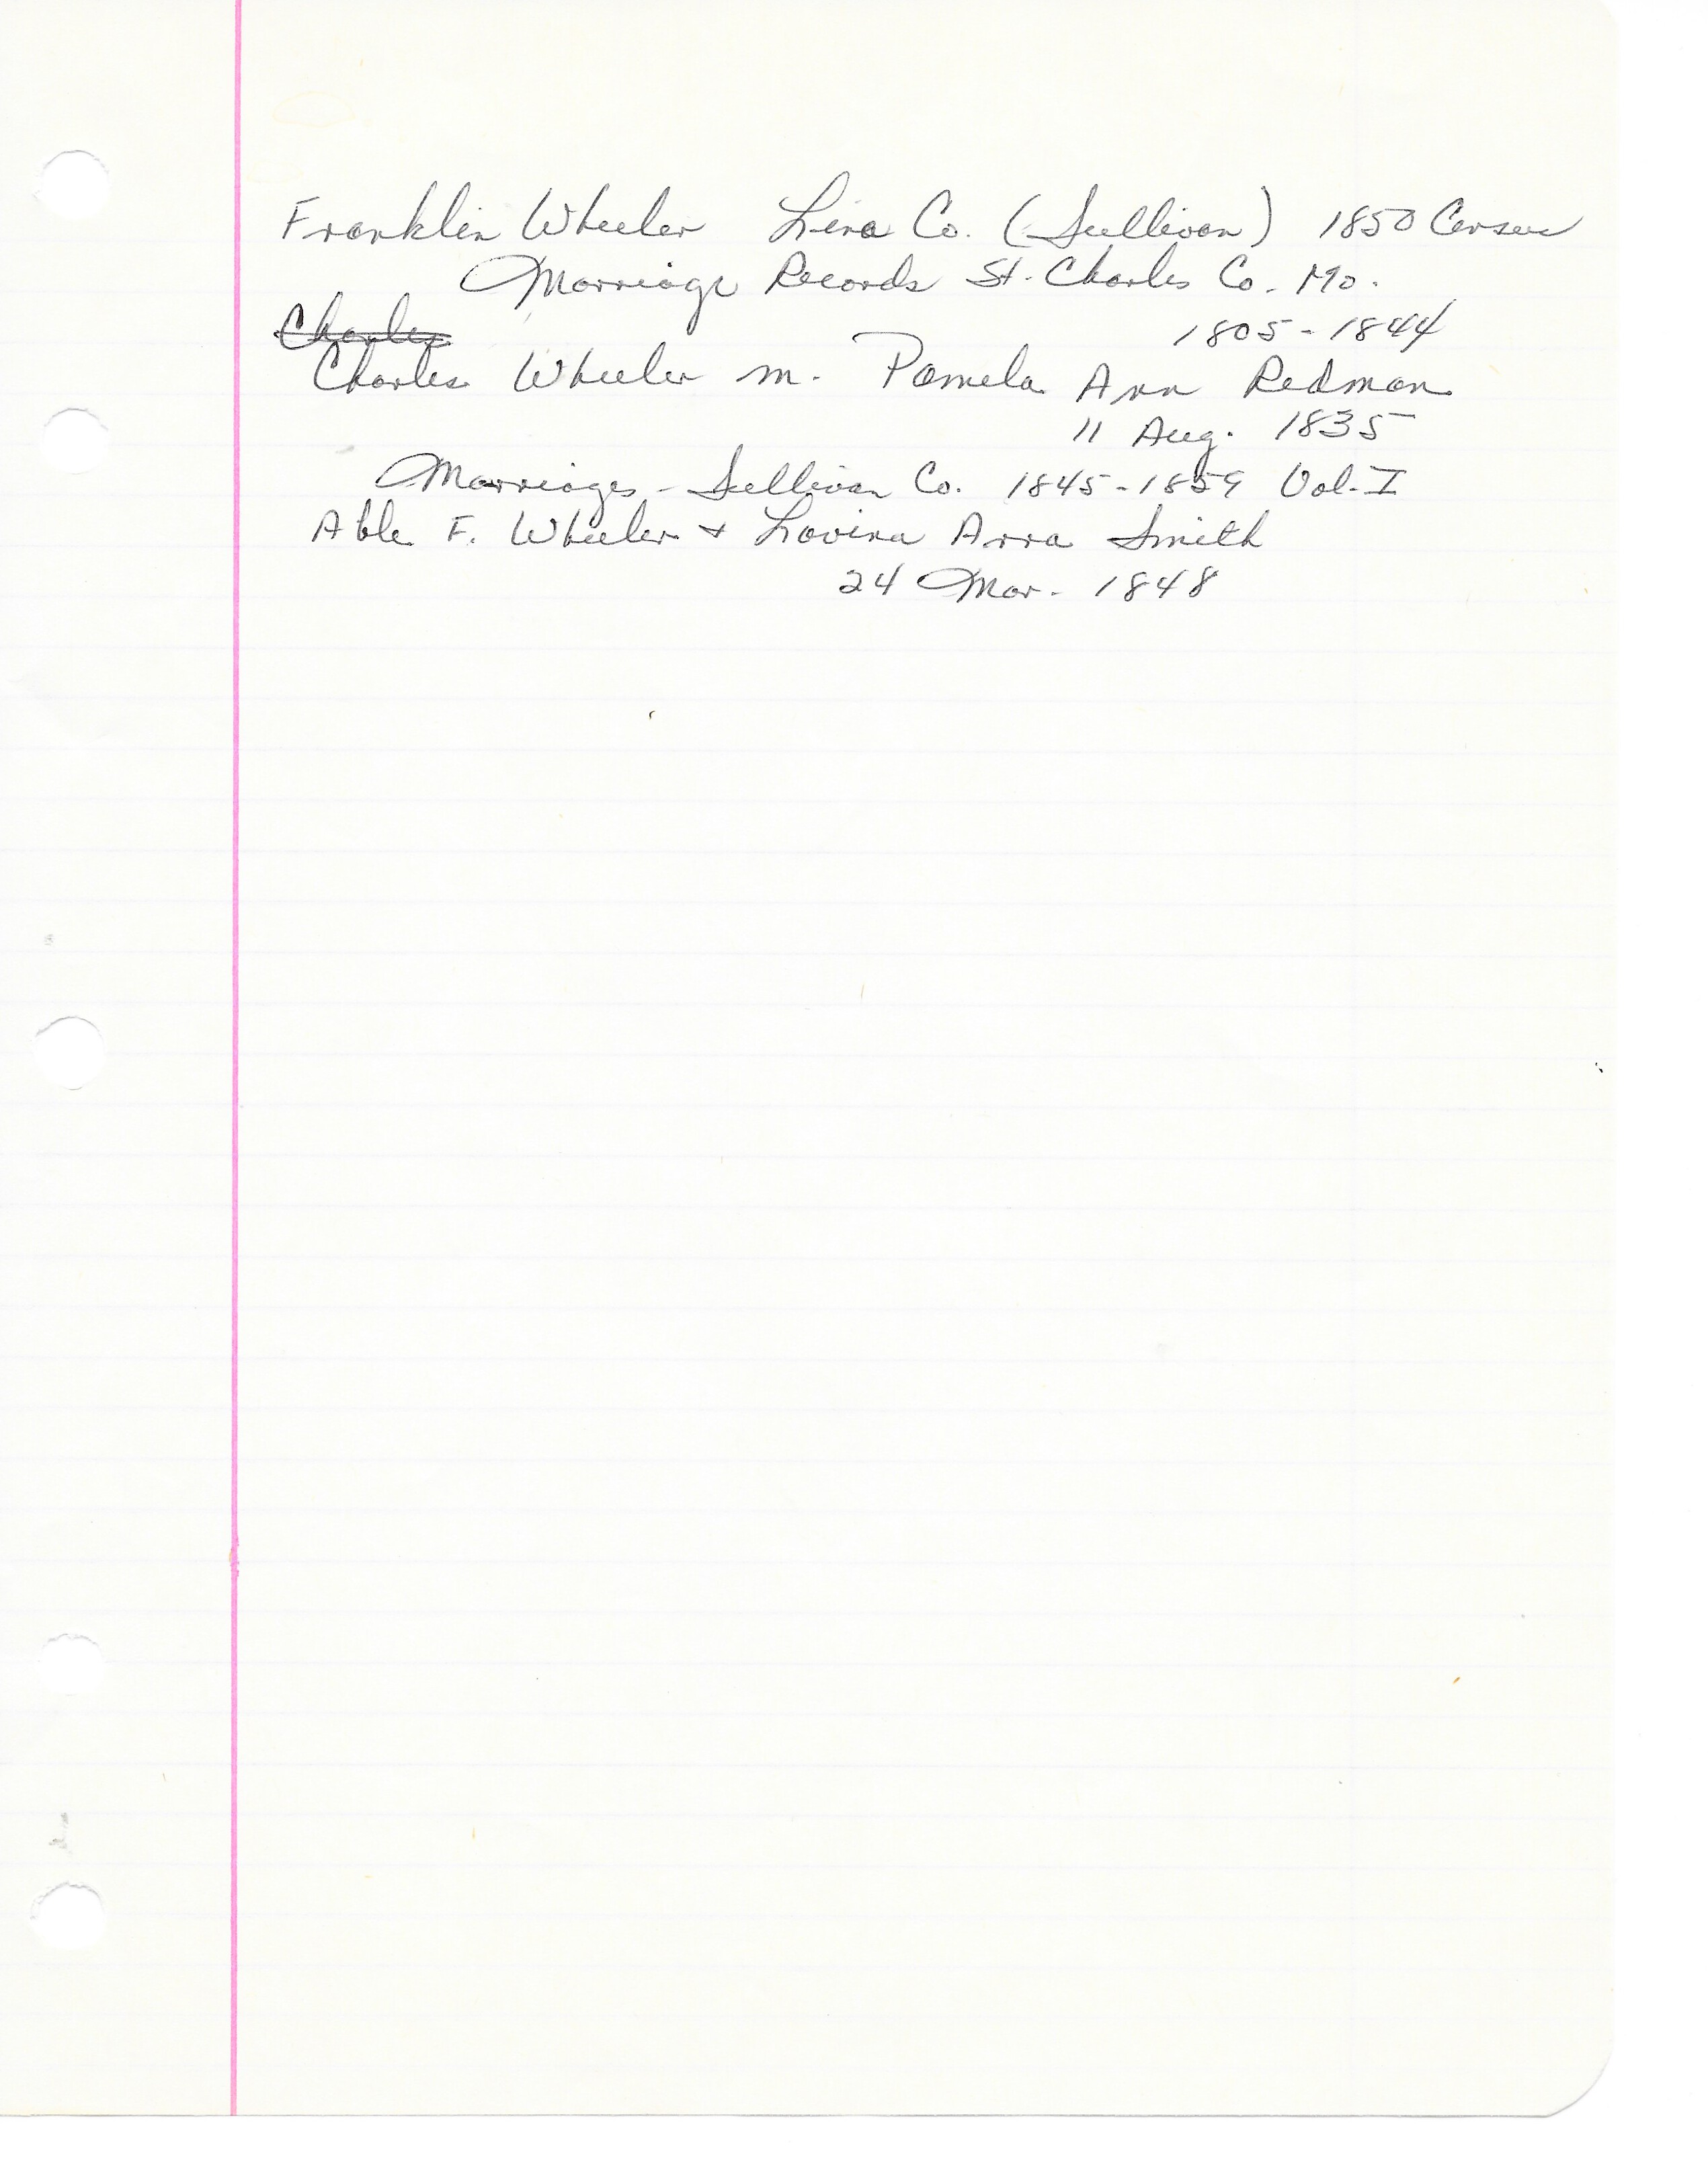 Franklin Wheeler Linn Co. (Sullivan) 1850 Census
Marriage Records St. Charles Co. Mo.
1805-1844
Charles
Charles Wheeler m. Pamela Ann Redman
11 Aug. 1835
Marriages - Sullivan Co. 1845-1859 Vol. I
Able F. Wheeler + Lovina Anna Smith
24 Mar. 1848